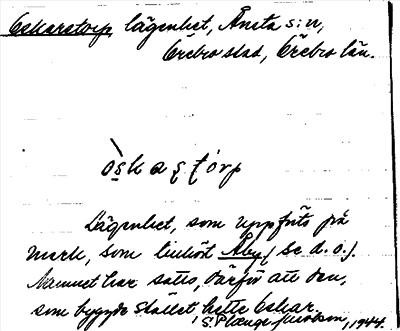 Oskarstorp, lägenhet, Ånsta s:n,
Örebro stad, Örebro län.
òskaṣṭórp
Lägenhet, som uppförts på
mark, som tillhört Åby (se d. o.).
Namnet har satts, därför att den,
som byggde stället hette Oskar.
S. Plange Jacobson, 1944.